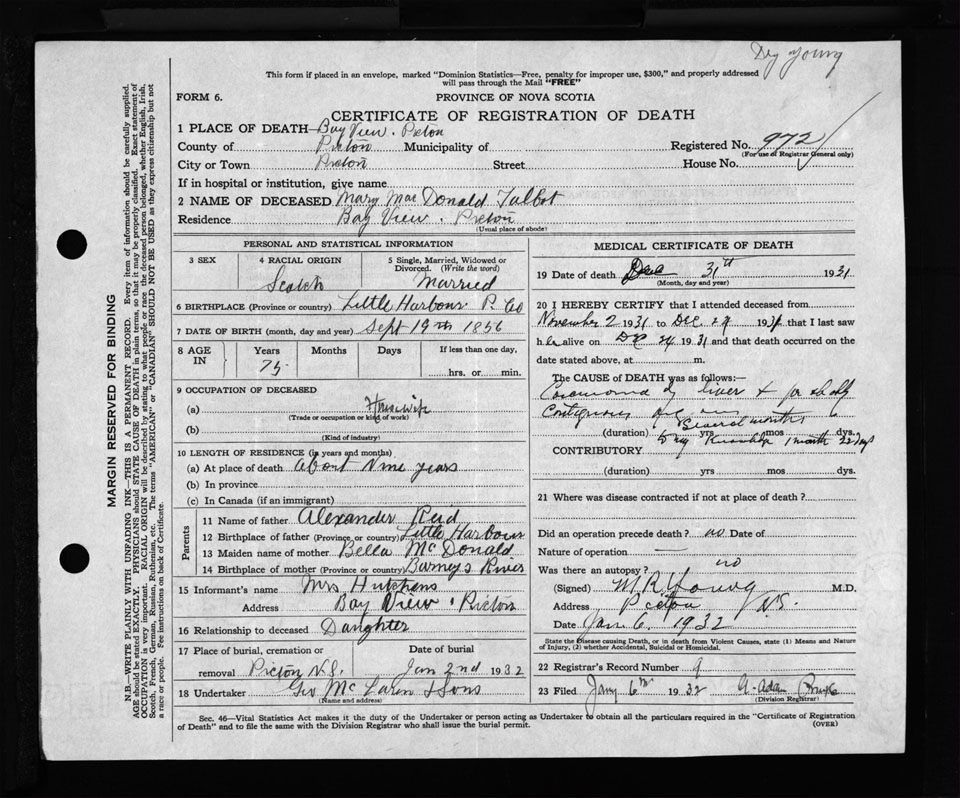 Dr Young
This form if placed in an envelope, marked "Dominion Statistics—Free, penalty for improper use, $300," and properly addressed
will pass through the Mail "FREE"
FORM 6.
PROVINCE OF NOVA SCOTIA
CERTIFICATE OF REGISTRATION OF DEATH
1 PLACE OF DEATH—Bay View. Pictou
County of Pictou Municipality of Registered No. 972
(For use of Registrar General only)
City or Town Pictou Street House No.
If in hospital or institution, give name
2 NAME OF DECEASED Mary Mac Donald Talbot
Residence Bay View. Pictou
(Usual place of abode)
PERSONAL AND STATISTICAL INFORMATION
3 SEX 4 RACIAL ORIGIN 5 Single, Married, Widowed or
Divorced. (Write the word)
Scotch Married
6 BIRTHPLACE (Province or country) Little Harbour P. Co
7 DATE OF BIRTH (month, day and year) Sept 19th 1856
8 AGE IN Years Months Days If less than one day,
75 hrs. or min.
9 OCCUPATION OF DECEASED
(a) Housewife
(Trade or occupation or kind of work)
(b)
(Kind of industry)
10 LENGTH OF RESIDENCE (in years and months)
(a) At place of death About Nine years
(b) In province
(c) In Canada (if an immigrant)
Parents
11 Name of father Alexander Reid
12 Birthplace of father (Province or country) Little Harbour
13 Maiden name of mother Bella McDonald
14 Birthplace of mother (Province or country) Barneys River
15 Informant's name Mrs Hutchens
Address Bay View. Pictou
16 Relationship to deceased Daughter
17 Place of burial, cremation or Date of burial
removal Pictou N.S. Jan 2nd 1932
18 Undertaker Geo McLaren & Sons
(Name and address)
MEDICAL CERTIFICATE OF DEATH
19 Date of death Dec 31st 1931
(Month, day and year)
20 I HEREBY CERTIFY that I attended deceased from
November 2 1931 to Dec 29 1931 that I last saw
her alive on Dec 29 1931 and that death occurred on the
date stated above, at m.
The CAUSE of DEATH was as follows:—
Carcinoma of liver +
Contiguous
Several months
(duration) yrs mos dys.
CONTRIBUTORY 1 month 22 days
(duration) yrs mos dys.
21 Where was disease contracted if not at place of death?
Did an operation precede death? no Date of
Nature of operation —
Was there an autopsy? no
(Signed) M R Young M.D.
Address Pictou N.S.
Date Jan 6. 1932
State the Disease causing Death, or in death from Violent Causes, state (1) Means and Nature
of Injury, (2) whether Accidental, Suicidal or Homicidal.
22 Registrar's Record Number 9
23 Filed Jany 6th 1932 A. Adam
(Division Registrar)
Sec. 46—Vital Statistics Act makes it the duty of the Undertaker or person acting as Undertaker to obtain all the particulars required in the "Certificate of Registration
of Death" and to file the same with the Division Registrar who shall issue the burial permit. (OVER)
MARGIN RESERVED FOR BINDING
N.B.—WRITE PLAINLY WITH UNFADING INK—THIS IS A PERMANENT RECORD. Every item of information should be carefully supplied.
AGE should be stated EXACTLY. PHYSICIANS should STATE CAUSE OF DEATH in plain terms, so that it may be properly classified. Exact statement of
OCCUPATION is very important. RACIAL ORIGIN will be described by stating to what people or race the deceased person belonged, whether English, Irish,
Scotch, French, German, Russian, Ruthenian, etc. The terms "AMERICAN" or "CANADIAN" SHOULD NOT BE USED as they express citizenship but not
a race or people. Fee instructions on back of Certificate.